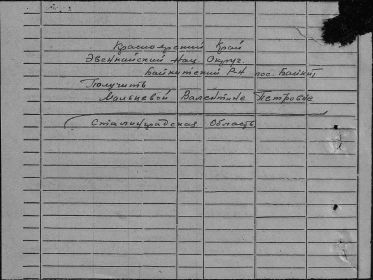 Красноярский Край
Эвенкийский Нац. Округ.
Байкитский Р-н пос. Байкит
Получить
Мальцевой Валентине Петровне
Сталинградская Область